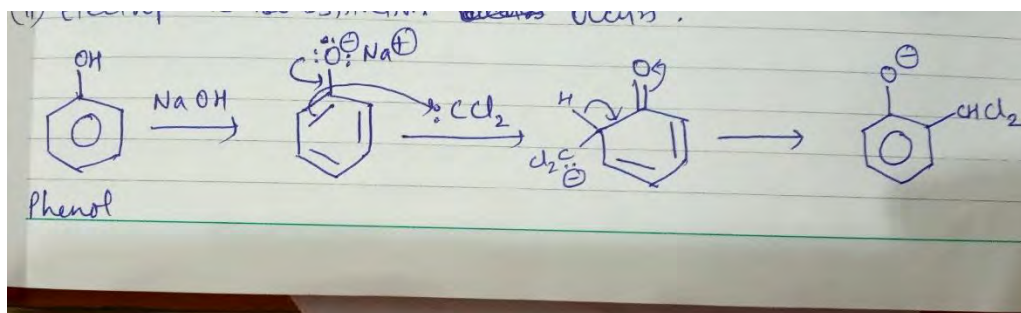 OH
NaOH
:Ö:⊖ Na⊕
:CCl₂
H
O
Cl₂C:⊖
O⊖
CHCl₂
Phenol